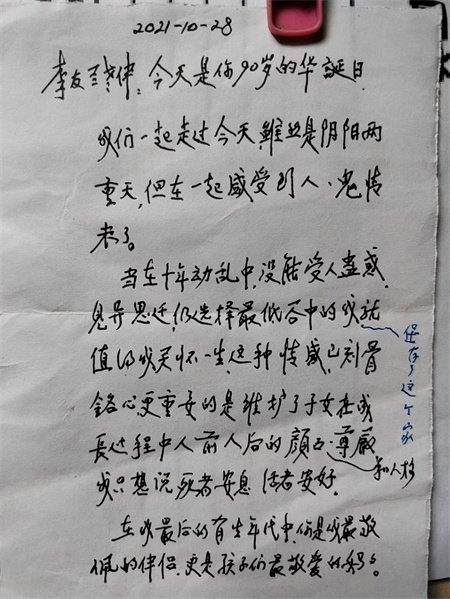 2021-10-28
李友兰老伴：今天是你90岁的华诞日.
我们一起走过今天虽然是阴阳两
重天，但在一起感受到人、鬼情
未了。
当在十年动乱中，没能受人蛊惑.
见异思迁，仍选择最低谷中的我就
值得我关怀一生，这种情感已刻骨
铭心更重要的是维护了子女在成
长过程中人前人后的颜面.尊严
我只想说死者安息 活者安好.
在我最后的有生年代中，你是我最敬
佩的伴侣，更是孩子们最敬爱的妈妈。
保存了这个家
和人格